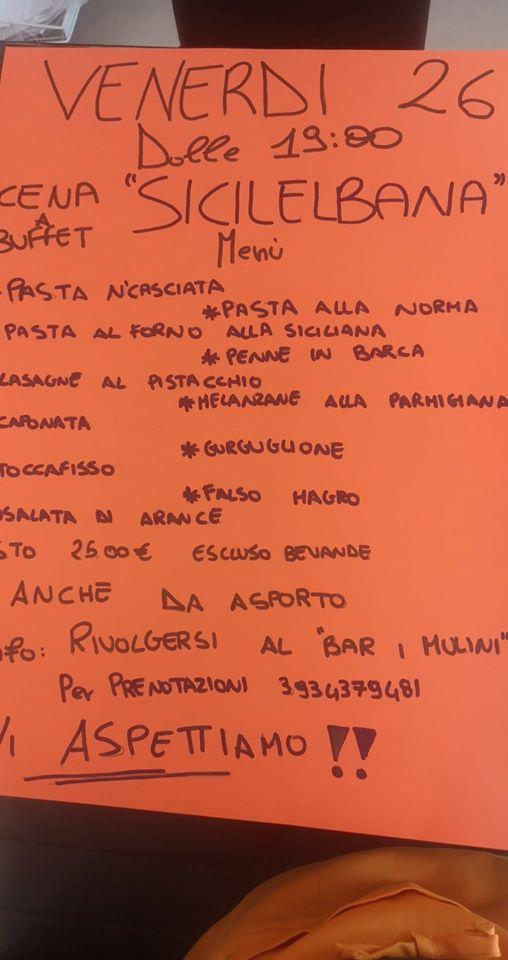 VENERDI 26
Dalle 19:00
CENA A BUFFET "SICILELBANA"
Menù
PASTA N'CASCIATA
*PASTA ALLA NORMA
PASTA AL FORNO ALLA SICILIANA
*PENNE IN BARCA
LASAGNE AL PISTACCHIO
*MELANZANE ALLA PARMIGIANA
CAPONATA
*GURGUGLIONE
TOCCAFISSO
*FALSO MAGRO
NSALATA DI ARANCE
STO 2500€ ESCLUSO BEVANDE
ANCHE DA ASPORTO
nfo: RIVOLGERSI AL "BAR I MULINI"
Per PRENOTAZIONI 3934379481
VI ASPETTIAMO !!